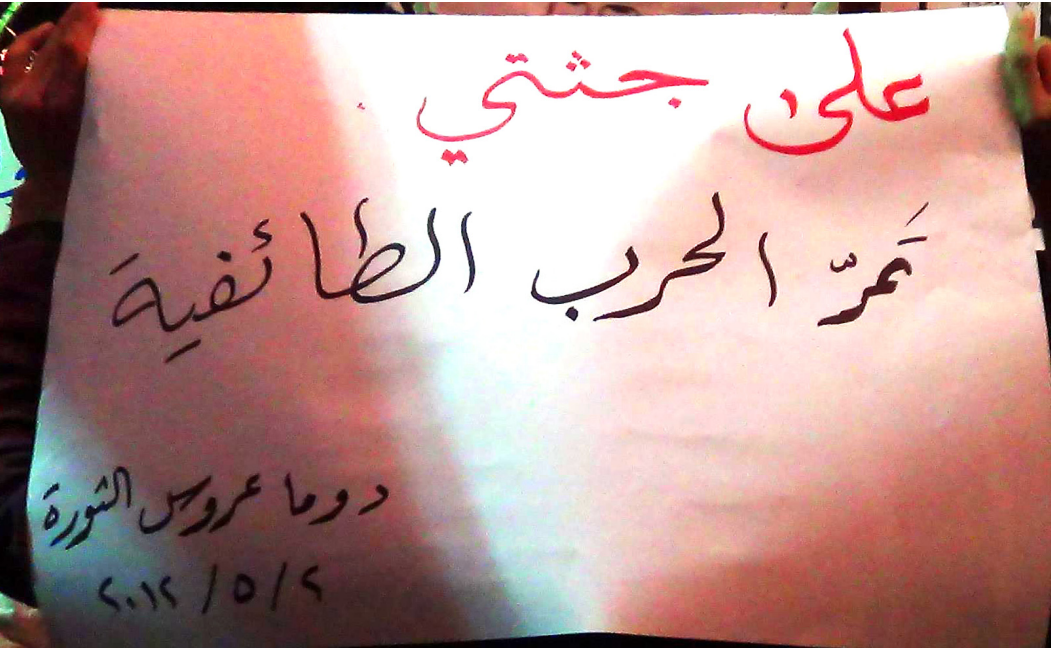 على جثتي
تَمرّ الحرب الطائفية
دوما عروس الثورة
٢ / ٥ / ٢٠١٢